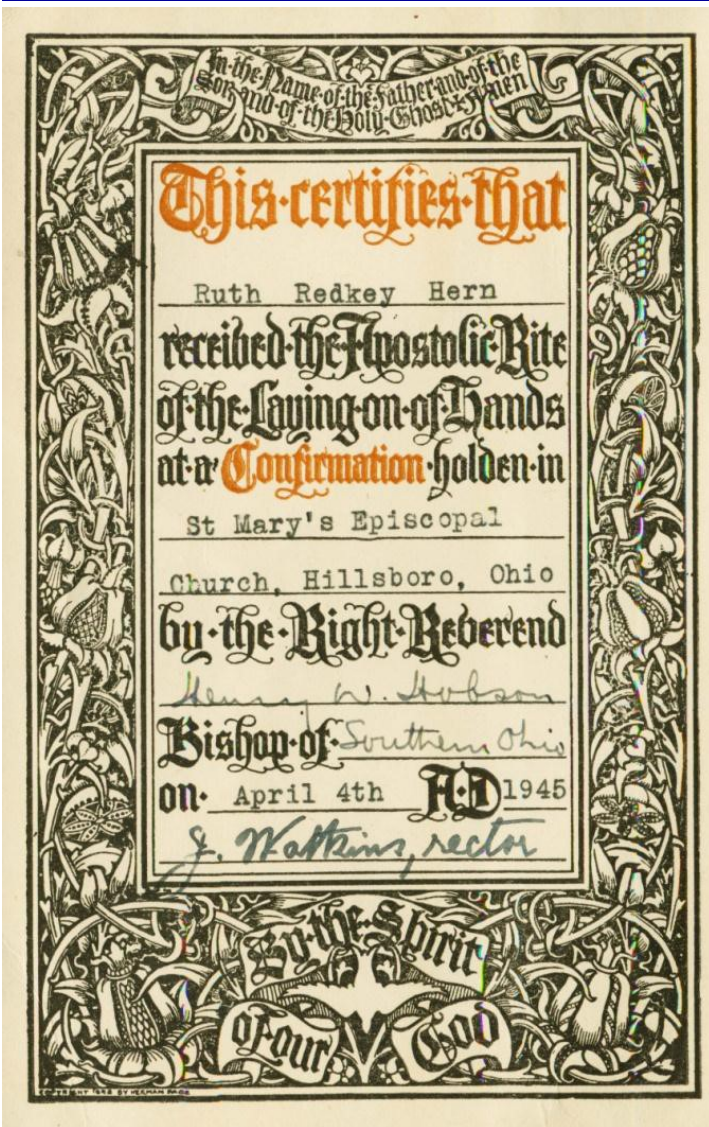 In·the·Name·of·the·Father·and·of·the
Son·and·of·the·Holy·Ghost·Amen
This·certifies·that
Ruth Redkey Hern
received·the·Apostolic·Rite
of·the·Laying·on·of·Hands
at·a·Confirmation·holden·in
St Mary's Episcopal
Church, Hillsboro, Ohio
by·the·Right·Reverend
Henry W. Hobson
Bishop·of·Southern Ohio
on· April 4th A·D 1945
J. Watkins, rector
By·the·Spirit
of·our God
COPYRIGHT BY HERMAN PAGE